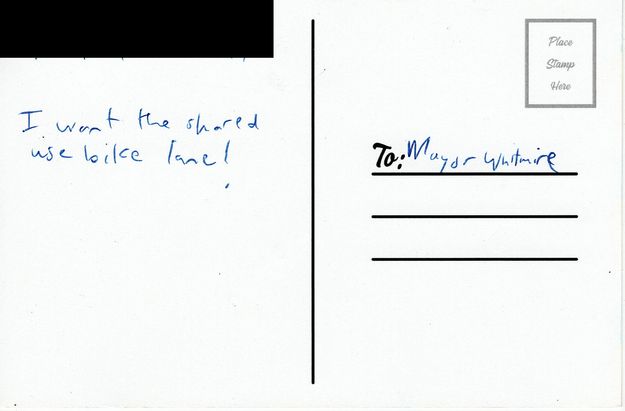 I want the shared
use bike lane!
Place
Stamp
Here
To: Mayor Whitmire